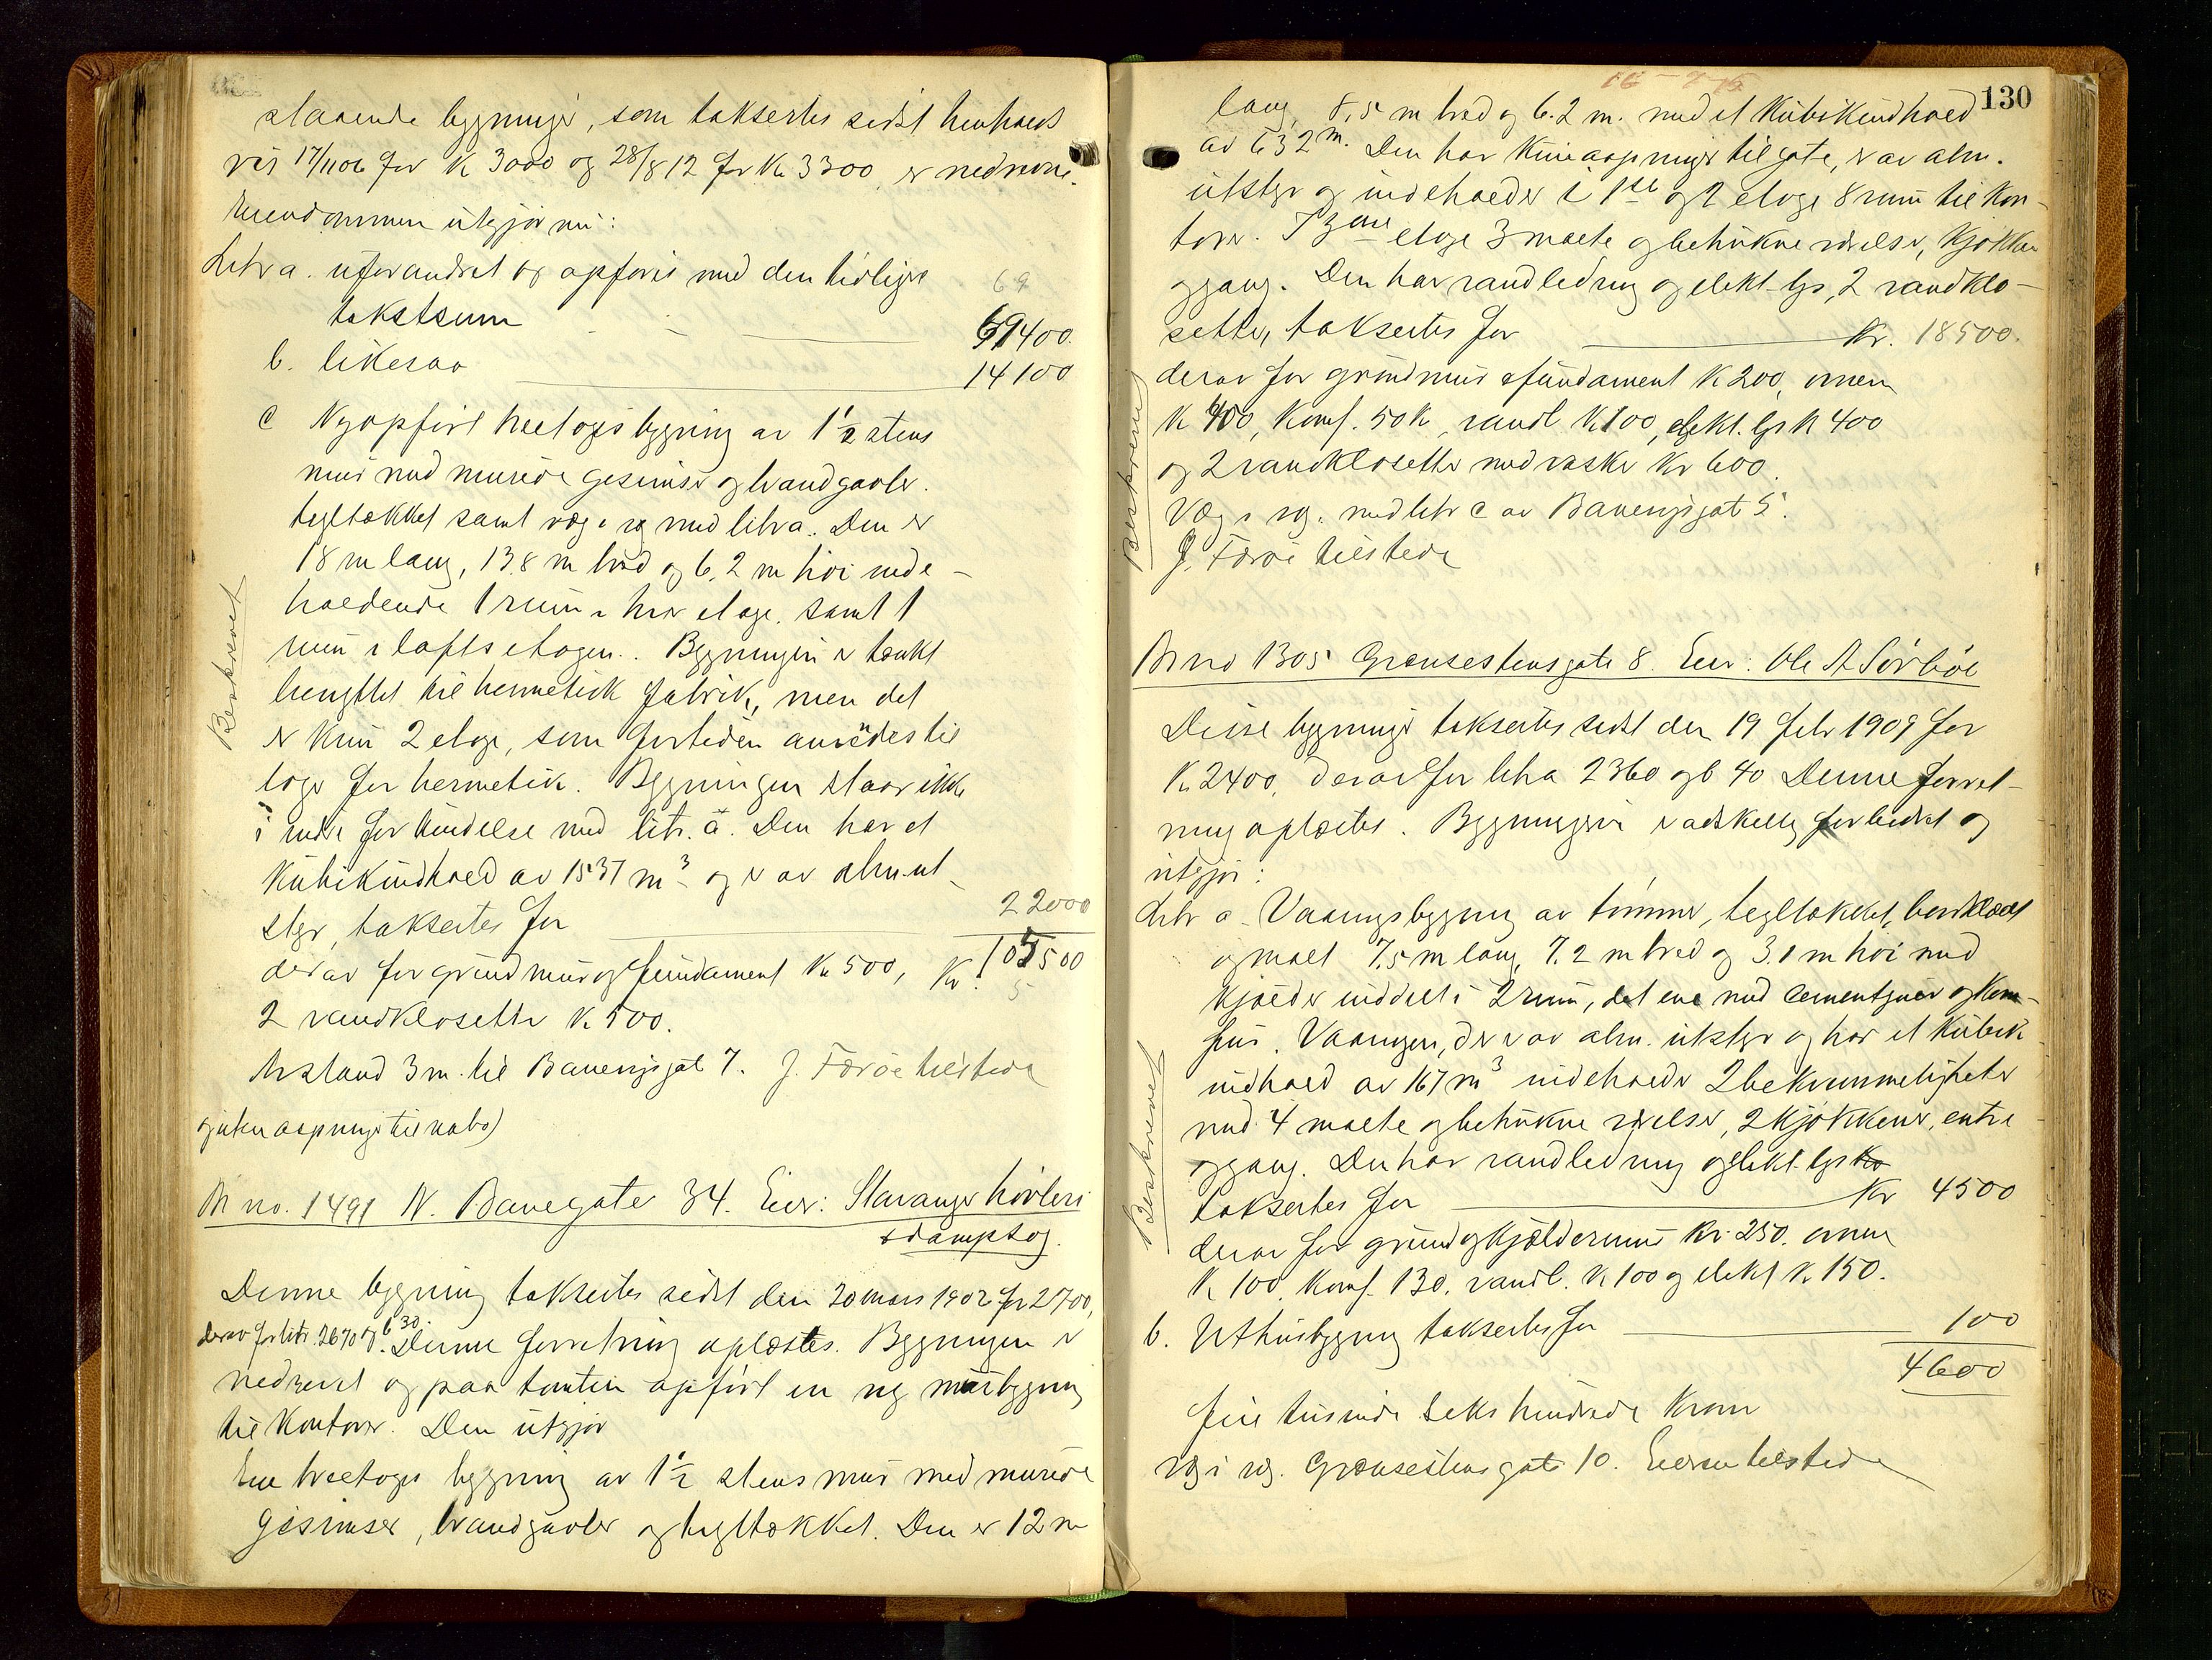 staaende bygninger, som taksertes sidst henholds
vis 17/11 06 for K 3000 og 28/8 12 for Kr 3300, er nedrevne.
Eiendommen utgjør nu:
Litr a. uforandret og opføres med den tidligere
69
takstsum 69400.
b. likesaa 14100
c Nyopført treetages bygning av 1 1/2 stens
mur med murede gesimser og brandgavler.
tegltækket samt væg i væg med litr a. Den er
18 m lang, 13.8 m bred og 6.2 m høi inde-
holdende 1 rum i hver etage. samt 1
rum i loftsetagen. Bygningen er tænkt
benyttet til hermetisk fabrik, men det
er kun 2 etage, som for tiden anvendes til
lager for hermetik. Bygningen staar ikke
i indre forbindelse med litr. a. Den har et
Kubikindhold av 1537 m3 og er av alm. ut-
styr, taksertes for 22000
derav for grundmur og fundament Kr 500, Kr. 105500
5
2 vandklosetter K. 500.
Avstand 3 m. til Banevigsgat 7. J. Færøe tilstede
og uten aapninger til nabo)
Beskrevet
M no. 1491 N. Banegate 34. Eier: Stavanger høvleri
& dampsag.
Denne bygning taksertes sidst den 20 mars 1902 for 2700,
derav for litr. 2670 og b 30. Denne forretning oplæstes. Bygningen er
nedrevet og paa tomten opført en ny murbygning
til Kontorer. Den utgjør
En treetages bygning av 1 1/2 stens mur med murede
gesimser, brandgavler og tegltækket. Den er 12 m
130
lang, 8,5 m bred og 6.2 m. med et Kubikindhold
av 632 m. Den har Kun aapninger til gate, er av alm.
utstyr og indeholder i 1ste og 2 etage 8 rum til Kon-
torer. I 3die etage 3 malte og betrukne værelser, Kjøkken
og gang. Den har vandledning og elekt. lys, 2 vandklo-
setter, taksertes for Kr. 18500.
derav for grundmur & fundament K 200, ovnen
K 400, Komf. 50 K, vandl K 100, elekt. lys K 400
og 2 vandklosetter med vaske Kr 600.
Væg i væg. med litr c av Banevigsgat 5.
J. Færøe tilstede
Beskrevet
M no 1305 Grænsestensgate 8. Eier: Ole A Sørbøe
Disse bygninger taksertes sidst den 19 febr 1909 for
K. 2400, derav for litr a 2360 og b 40 Denne forret-
ning oplæstes. Bygningerne er adskillig forbedret og
utgjør:
Litr a. Vaaningsbygning av tømmer, tegltækket, bordklædt
og malt 7,5 m lang, 7.2 m bred og 3.1 m høi med
Kjælder inddelt i 2 rum, det ene med cementgulv og Kom-
fur. Vaaningen, der er av alm. utstyr og har et Kubik
indhold av 167 m3 indeholder 2 bekvemmeligheter
med 4 malte og betrukne værelser, 2 Kjøkkener, entre
og gang. Den har vandledning og elekt. lys
taksertes for Kr 4500
derav for grund og Kjældermur Kr. 250. ovnen
K 100. Komf. 130. vandl. K 100 og elekt K. 150.
b. Uthusbygning taksertes for 100
4600
Fire tusinde seks hundrede Kroner
væg i væg. Grænsestensgate 10. Eieren tilstede
Beskrevet